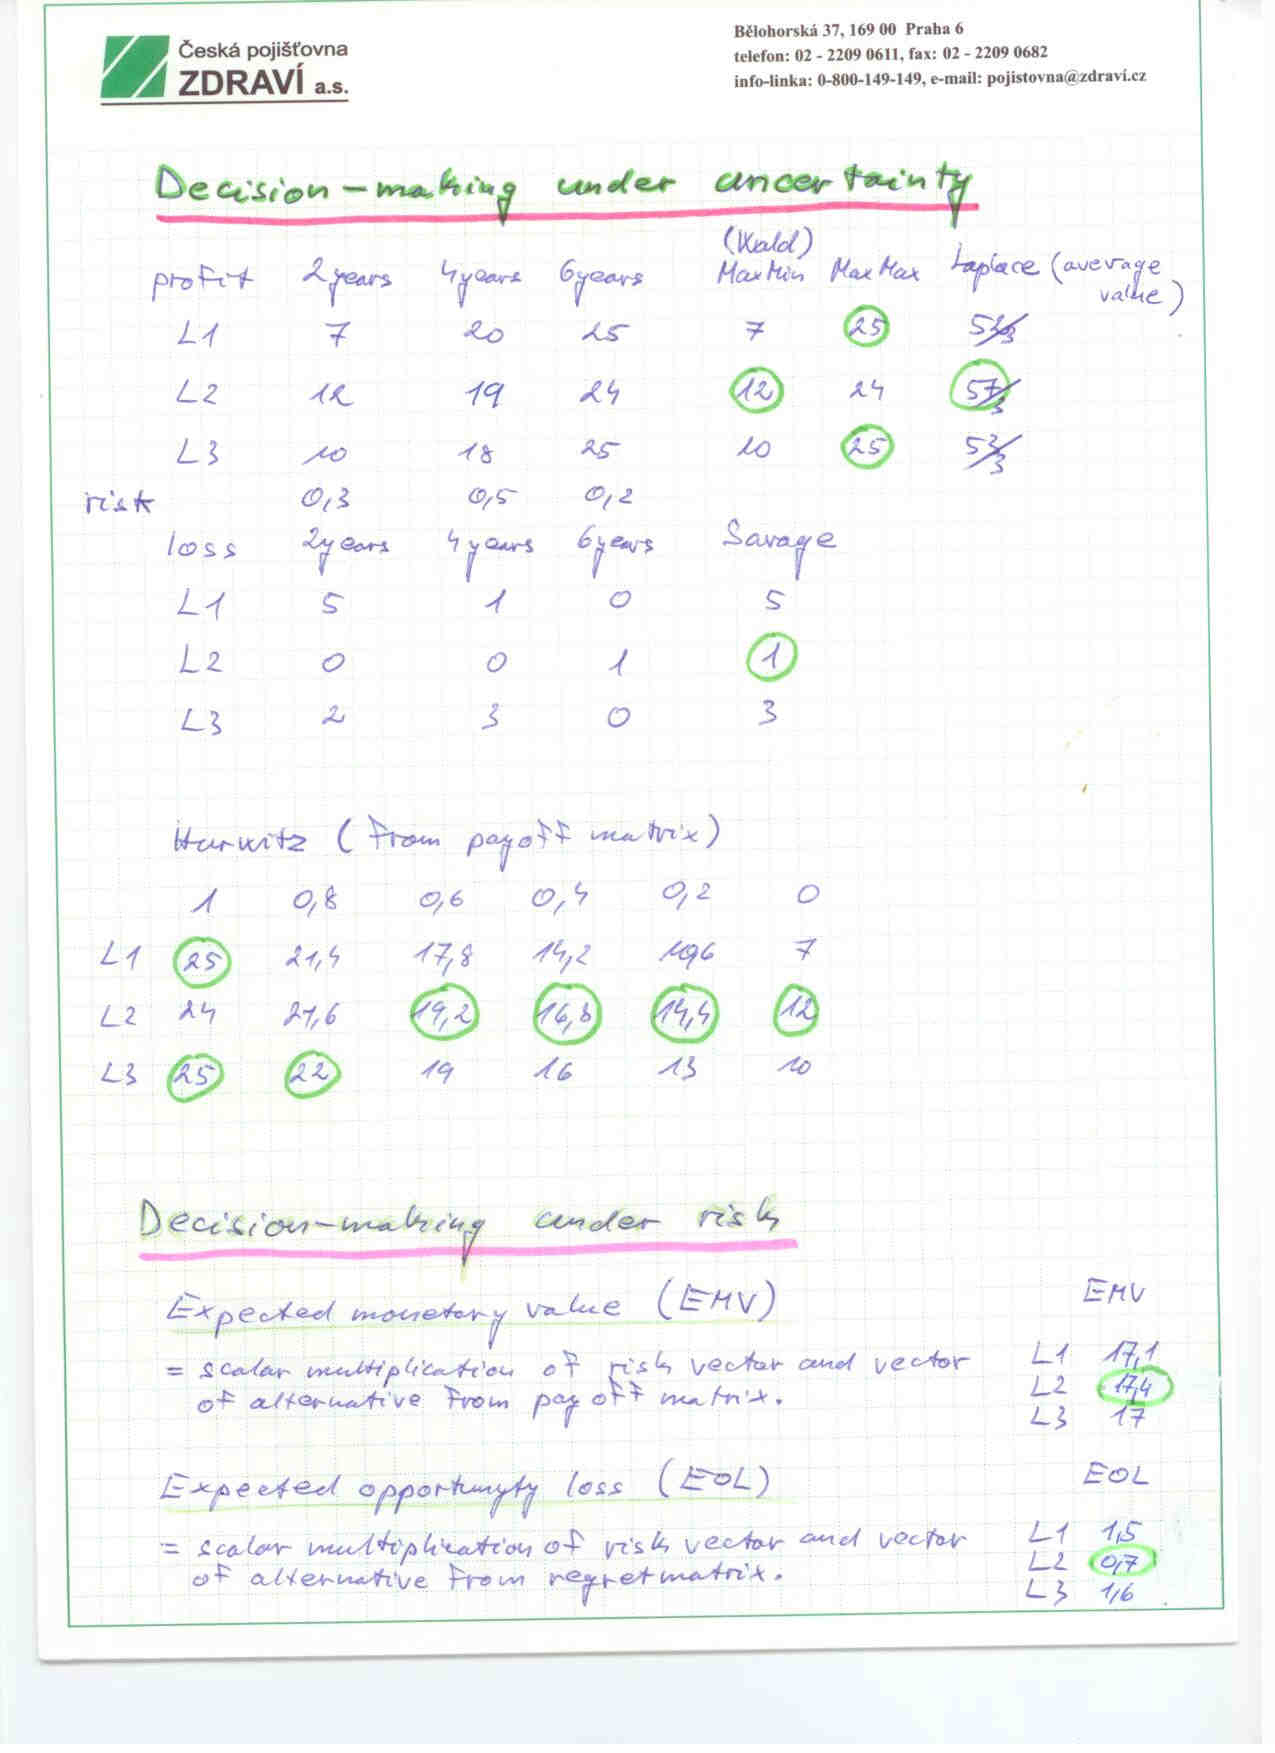 Česká pojišťovna
ZDRAVÍ a.s.
Bělohorská 37, 169 00 Praha 6
telefon: 02 - 2209 0611, fax: 02 - 2209 0682
info-linka: 0-800-149-149, e-mail: pojistovna@zdravi.cz
Decision-making under uncertainty
(Wald)
profit 2years 4years 6years MaxMin MaxMax Laplace (average value)
L1 7 20 25 7 25 52/3
L2 12 19 24 12 24 57/3
L3 10 18 25 10 25 53/3
risk 0,3 0,5 0,2
loss 2years 4years 6years Savage
L1 5 1 0 5
L2 0 0 1 1
L3 2 3 0 3
Hurwitz (From payoff matrix)
1 0,8 0,6 0,4 0,2 0
L1 25 21,4 17,8 14,2 10,6 7
L2 24 21,6 19,2 16,8 14,4 12
L3 25 22 19 16 13 10
Decision-making under risk
Expected monetary value (EMV) EMV
= scalar multiplication of risk vector and vector L1 17,1
of alternative from payoff matrix. L2 17,4
L3 17
Expected opportunyty loss (EOL) EOL
= scalar multiplication of risk vector and vector L1 1,5
of alternative From regretmatrix. L2 0,7
L3 1,6